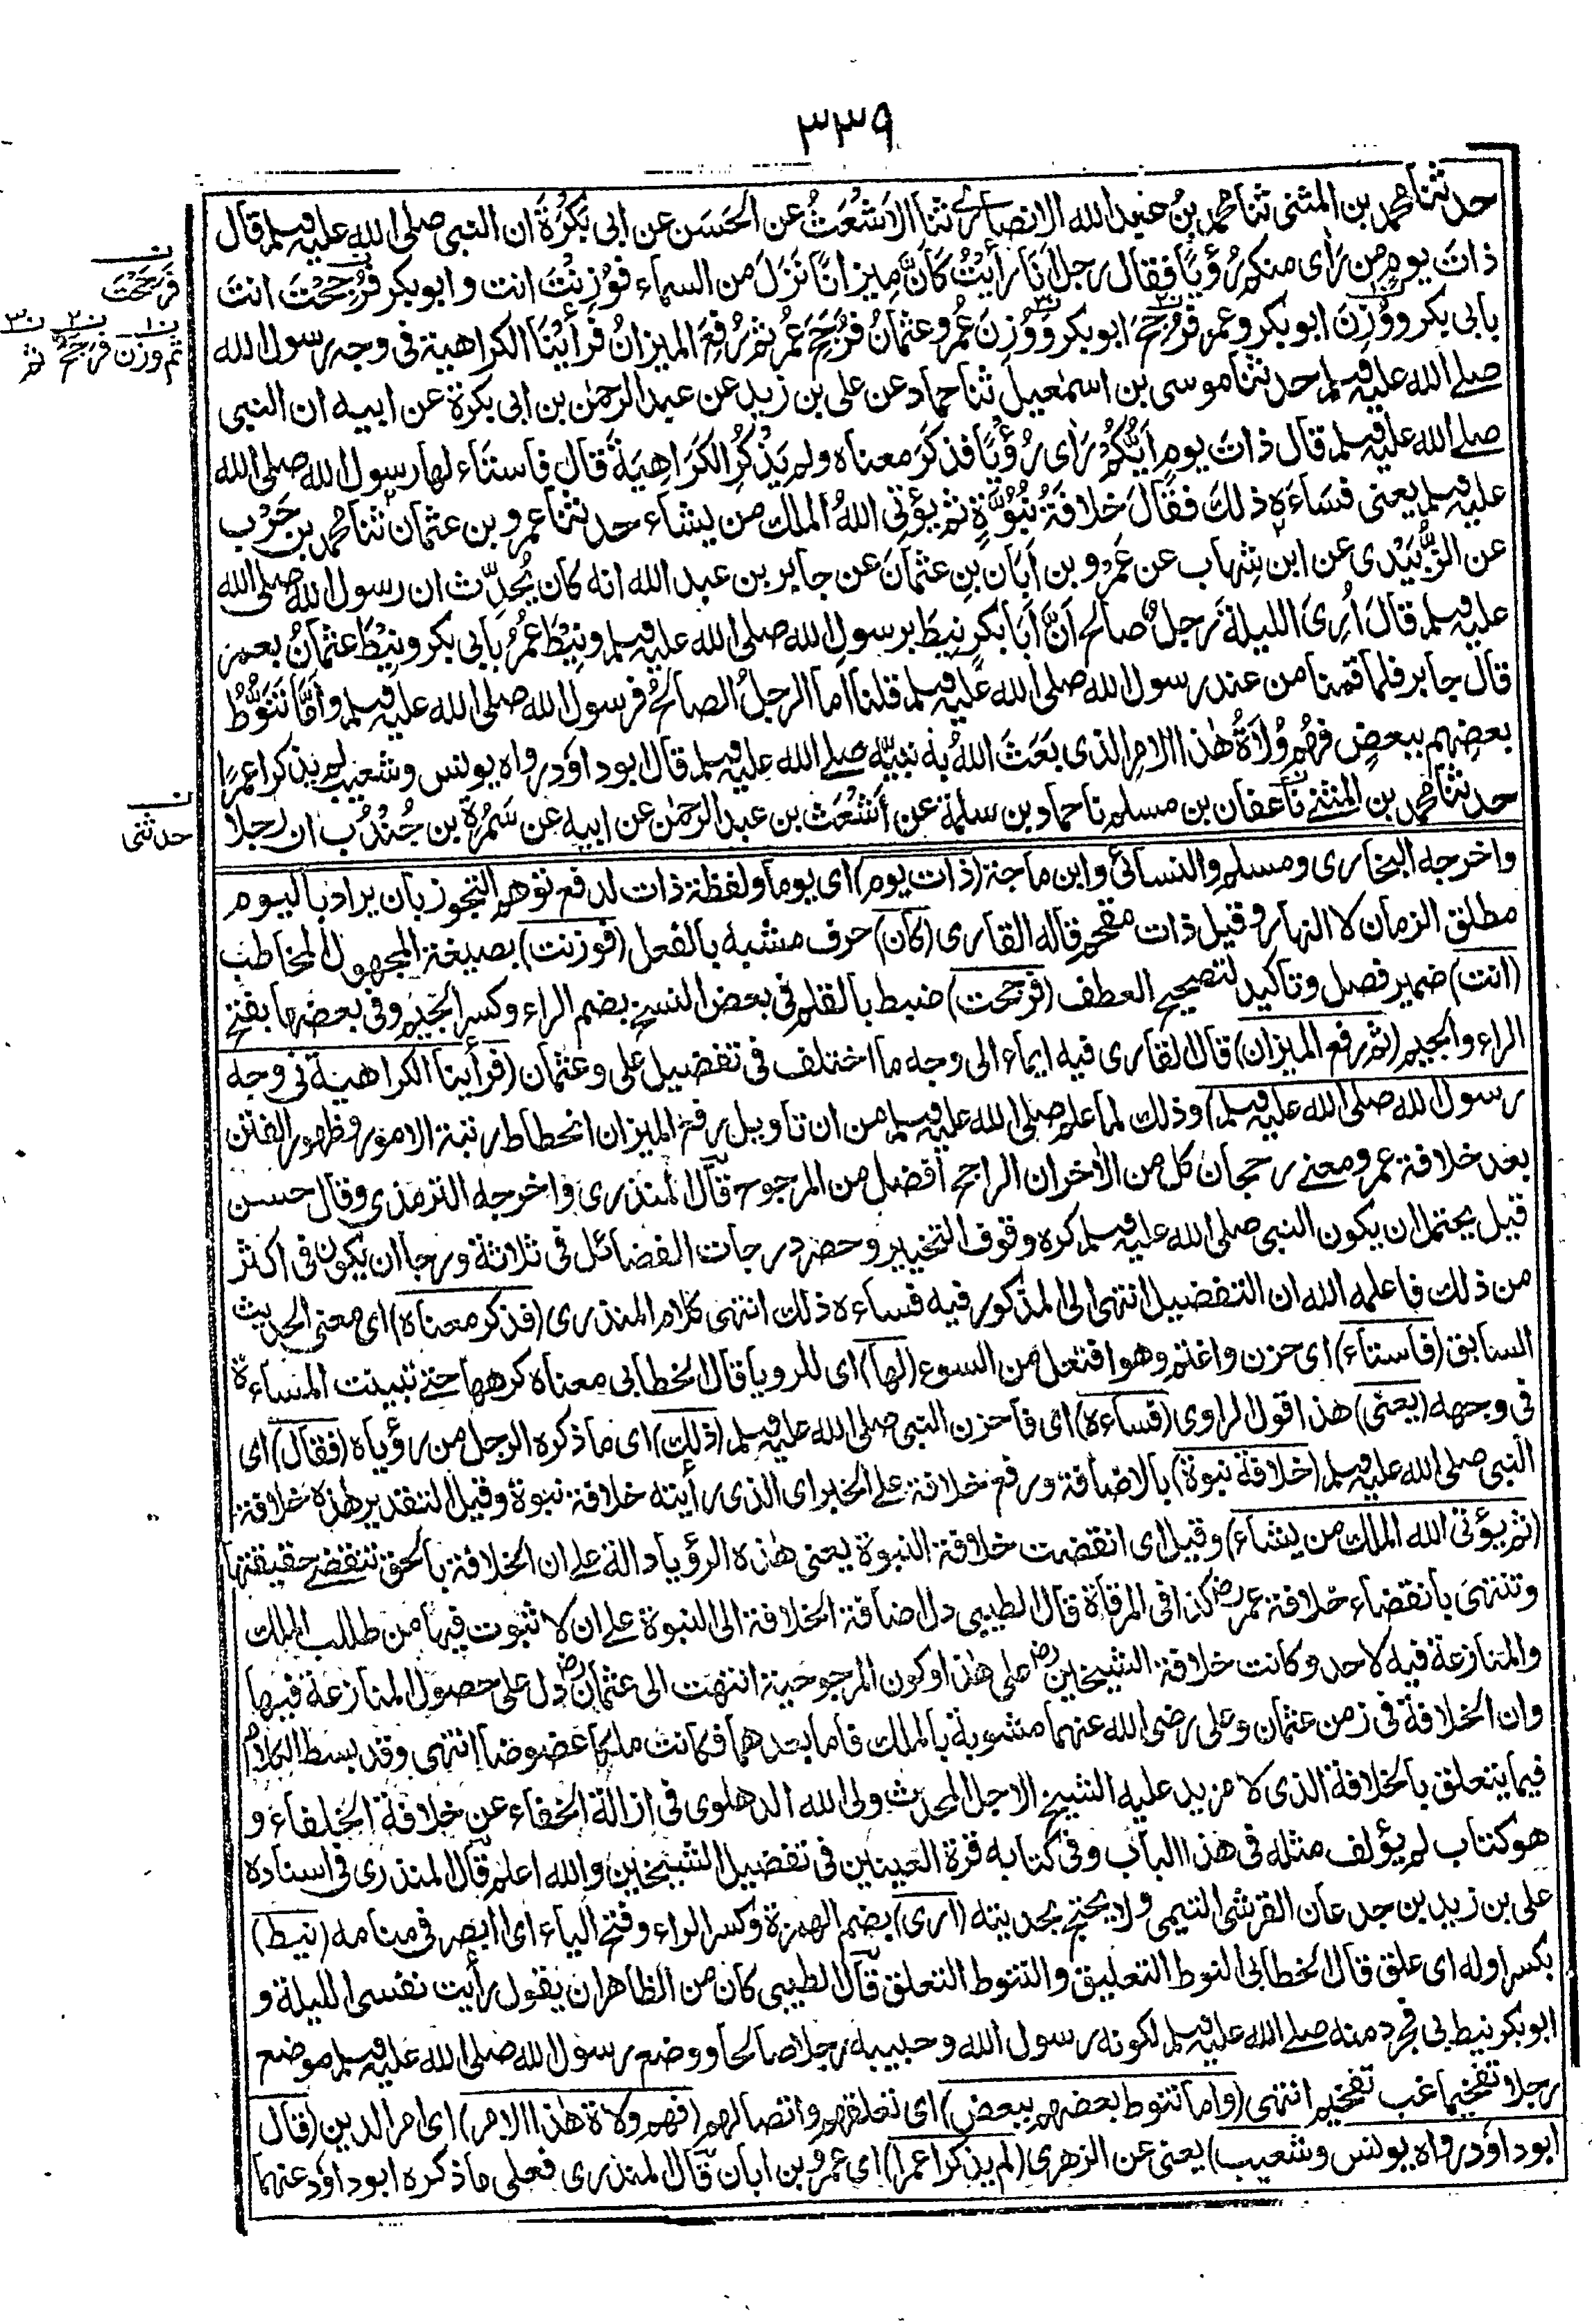 ٣٣٩
حدثنا محمد بن المثنى ثنا محمد بنُ عبد الله الانصاريُّ ثنا الاَشْعَثُ عن الحَسَن عن ابى بَكْرَةَ ان النبى صلى الله عليه وسلم قال
ذاتَ يومٍ من رَأى منكم رُؤيًا فقال رجلٌ اَنَا رأيْتُ كَاَنَّ مِيزانًا نَزَلَ من السماء فوُزِنْتَ انت وابوبكر فرُجِحْتَ انتَ
بابى بكر ووُزِنَ ابوبكر وعمر فرُجِحَ ابوبكر ووُزِنَ عُمرُ وعثمانُ فرُجِحَ عُمرُ ثم رُفِعَ الميزانُ فرأيْنَا الكراهية فى وجه رسول الله
صلے الله عليه وسلم حدثنا موسى بن اسمٰعيل ثنا حماد عن على بن زيدٍ عن عبد الرحمٰن بن ابى بكرة عن ابيه ان النبى
صلے الله عليه وسلم قال ذاتَ يومٍ اَيُّكُمْ رَاٰى رُؤْيًا فذكَرَ معناه ولم يَذْكُرِ الكَرَاهِيَةَ قال فاستَاء لها رسول الله صلى الله
عليه وسلم يعنى فسَاءَه ذلك فقال خلافَةُ نُبُوَّةٍ ثم يؤتِى اللهُ الملك من يشاء حدثنا عمرو بن عثمان ثنا محمد بن حَرْب
عن الزُّبَيْدى عن ابن شِهاب عن عَمْرو بن اَبَان بنِ عثمانَ عن جابر بن عبد الله انه كان يُحدِّث ان رسول الله صلى الله
عليه وسلم قالَ اُرِىَ الليلةَ رجلٌ صالح اَنَّ اَبَا بكرٍ نِيطَ برسولِ الله صلى الله عليه وسلم ونِيْطَ عُمَرُ بابى بكر ونِيْطَ عثمانُ بعمر
قال جابر فلما قمنا من عند رسول الله صلى الله عليه وسلم قلنا اما الرجلُ الصالحُ فرسولُ الله صلى الله عليه وسلم واَمَّا تَنَوُّطُ
بعضِهم ببعضٍ فهُم وُلَاةُ هٰذا الامرِ الذى بَعَثَ اللهُ به نبيَّه صلے الله عليه وسلم قال ابوداؤد رواه يونس وشعيب لم يذكرا عمرًا
حدثنا محمد بن المثنے نا عفان بن مسلم نا حماد بن سلمة عن اَشْعَث بن عبد الرحمٰن عن ابيه عن سَمُرة بن جُنْدُب ان رجلا
ن
فرَجَحْتَ
ن١ ن٢ ن٣
ثم وزن فرَجَحَ ثم
ن
حدثنى
واخرجه البخارى ومسلم والنسائى وابن ماجة (ذات يوم) اى يوما ولفظة ذات لدفع توهم التجوز بان يراد باليوم
مطلق الزمان لا النهار وقيل ذات مقحم قاله القارى (كان) حرف مشبه بالفعل (فوزنت) بصيغة المجهول المخاطب
(انت) ضمير فصل وتاكيد لتصحيح العطف (فرجحت) ضبط بالقلم فى بعض النسخ بضم الراء وكسر الجيم وفى بعضها بفتح
الراء والجيم (ثم رفع الميزان) قال القارى فيه ايماء الى وجه ما اختلف فى تفضيل على وعثمان (فرأينا الكراهية فى وجه
رسول الله صلى الله عليه وسلم) وذلك لما علم صلى الله عليه وسلم من ان تاويل رفع الميزان انحطاط رتبة الامور وظهور الفتن
بعد خلافة عمر ومعنے رجحان كل من الاٰخر ان الراجح افضل من المرجوح قال المنذرى واخرجه الترمذى وقال حسن
قيل يحتمل ان يكون النبى صلى الله عليه وسلم كره وقوف التخيير وحصر درجات الفضائل فى ثلاثة ورجا ان يكون فى اكثر
من ذلك فاعلمه الله ان التفضيل انتهى الى المذكور فيه فساءه ذلك انتهى كلام المنذرى (فذكر معناه) اى معنى الحديث
السابق (فاستاء) اى حزن واغتم وهو افتعل من السوء (لها) اى للرويا قال الخطابى معناه كرهها حتے تبينت المساءة
فى وجهه (يعنى) هذا قول الراوى (فساءه) اى فاحزن النبى صلى الله عليه وسلم (ذلك) اى ما ذكره الرجل من رؤياه (فقال) اى
النبى صلى الله عليه وسلم (خلافة نبوة) بالاضافة ورفع خلافة على الخبر اى الذى رأيته خلافة نبوة وقيل التقدير هذه خلافة
(ثم يؤتى الله الملك من يشاء) وقيل اى انقضت خلافة النبوة يعنى هذه الرؤيا دالة على ان الخلافة بالحق تنقضے حقيقتها
وتنتهى بانقضاء خلافة عمررض كذا فى المرقاة قال الطيبى دل اضافة الخلافة الى النبوة على ان لا ثبوت فيها من طلب الملك
والمنازعة فيه لاحد وكانت خلافة الشيخينرض على هذا وكون المرجوحية انتهت الى عثمانرض دل على حصول المنازعة فيها
وان الخلافة فى زمن عثمان وعلى رضى الله عنهما مشوبة بالملك فاما بعدهما فكانت ملكا عضوضا انتهى وقد بسط الكلام
فيما يتعلق بالخلافة الذى لا مزيد عليه الشيخ الاجل المحدث ولى الله الدهلوى فى ازالة الخفاء عن خلافة الخلفاء و
هو كتاب لم يؤلف مثله فى هذا الباب وفى كتابه قرة العينين فى تفضيل الشيخين والله اعلم قال المنذرى فى اسناده
على بن زيد بن جدعان القرشى التيمى ولا يحتج بحديثه (ارى) بضم الهمزة وكسر الراء وفتح الياء اى ابصر فى منامه (نيط)
بكسر اوله اى علق قال الخطابى النوط التعليق والتنوط التعلق قال الطيبى كان من الظاهر ان يقول رأيت نفسى الليلة و
ابوبكر نيط بى فجرد منه صلے الله عليه وسلم لكونه رسول الله وحبيبه رجلا صالحا ووضع رسول الله صلى الله عليه وسلم موضع
رجلا تفخيما غب تفخيم انتهى (واما تنوط بعضهم ببعض) اى تعلقهم واتصالهم (فهم ولاة هذا الامر) اى امر الدين (قال
ابوداؤد رواه يونس وشعيب) يعنى عن الزهرى (لم يذكرا عمرا) اى عمرو بن ابان قال المنذرى فعلى ما ذكره ابوداؤد عنهما